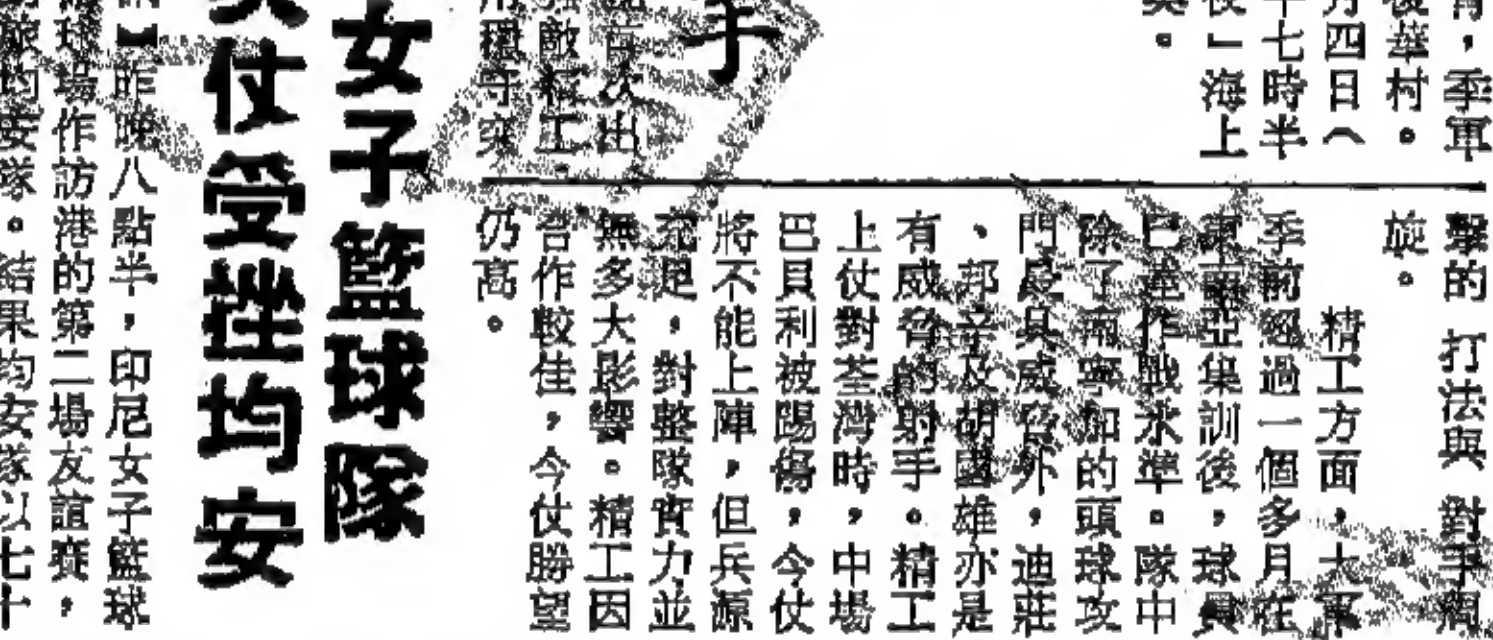 ,季軍
後華村。
月四日︵
七時半
」海上
。
手
次出
敵精工,
用穩守突
擊的 打法與 對手
旋。
精工方面,大軍
季前經過一個多月在
東南亞集訓後,球員
已達作戰水準。隊中
除了加的頭球攻
門最具威脅外,迪莊
、邦辛及胡國雄亦是
有威脅的射手。精工
上仗對荃灣時,中場
巴貝利被踢傷,今仗
將不能上陣,但兵源
充足,對整隊實力並
無多大影響。精工因
合作較佳,今仗勝望
仍高。
女子籃球隊
仗受挫均安
】昨晚八點半,印尼女子籃球
球場作訪港的第二場友誼賽,
均安隊。結果均安隊以七十